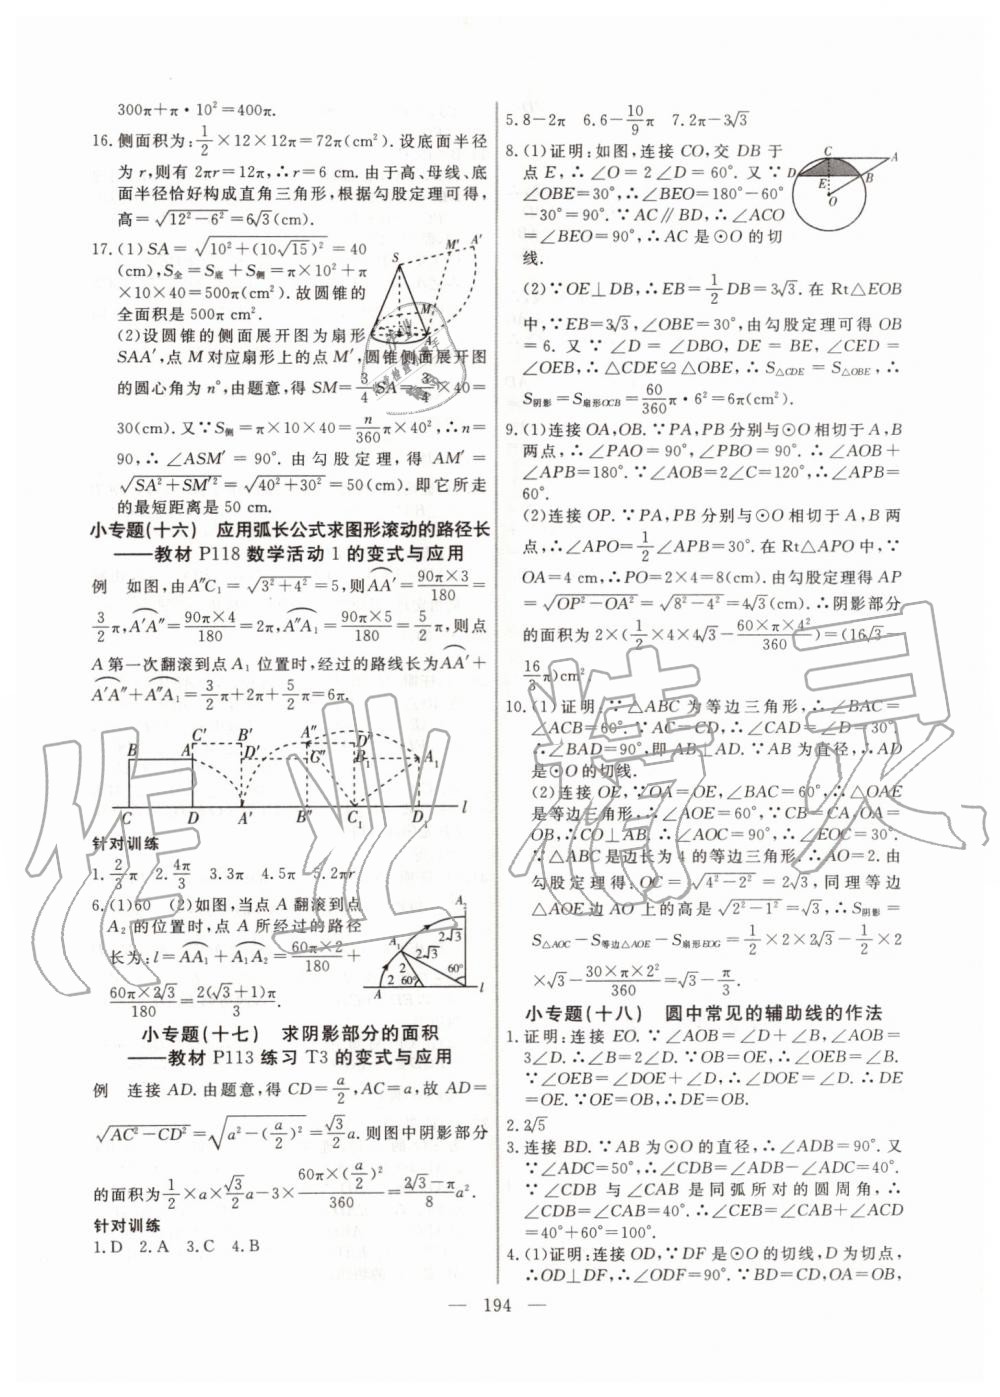 300π+π·10²=400π.
16. 侧面积为:1/2×12×12π=72π(cm²). 设底面半径
为 r,则有 2πr=12π,∴r=6 cm. 由于高、母线、底
面半径恰好构成直角三角形,根据勾股定理可得,
高=√(12²-6²)=6√3(cm).
17. (1) SA=√(10²+(10√15)²)=40
(cm),S全=S底+S侧=π×10²+π
×10×40=500π(cm²). 故圆锥的
全面积是 500π cm².
(2)设圆锥的侧面展开图为扇形
SAA′,点 M 对应扇形上的点 M′,圆锥侧面展开图
的圆心角为 n°,由题意,得 SM=3/4 SA=3/4×40=
30(cm). 又∵S侧=π×10×40=n/360 π×40²,∴n=
90,∴∠ASM′=90°. 由勾股定理,得 AM′=
√(SA²+SM′²)=√(40²+30²)=50(cm). 即它所走
的最短距离是 50 cm.
S M′ A′ M A
小专题(十六) 应用弧长公式求图形滚动的路径长
——教材 P118 数学活动 1 的变式与应用
例 如图,由A″C₁=√(3²+4²)=5,则⌒AA′=90π×3/180=
3/2 π,⌒A′A″=90π×4/180=2π,⌒A″A₁=90π×5/180=5/2 π,则点
A 第一次翻滚到点 A₁ 位置时,经过的路线长为⌒AA′+
⌒A′A″+⌒A″A₁=3/2 π+2π+5/2 π=6π.
B A C′ B′ D′ A″ C″ D″ B₁ A₁
C D A′ B″ C₁ D₁ l
针对训练
1. 2/3 π 2. 4π/3 3. 3π 4. 5π 5. 2πr
6. (1)60 (2)如图,当点 A 翻滚到点
A₂ 的位置时,点 A 所经过的路径
长为:l=⌒AA₁+⌒A₁A₂=60π×2/180+
60π×2√3/180=2(√3+1)π/3.
A₂ A₁ 2√3 2√3 2 2 60° 60° A l
小专题(十七) 求阴影部分的面积
——教材 P113 练习 T3 的变式与应用
例 连接 AD. 由题意,得 CD=a/2,AC=a,故 AD=
√(AC²-CD²)=√(a²-(a/2)²)=√3/2 a. 则图中阴影部分
的面积为1/2×a×√3/2 a-3×60π×(a/2)²/360=(2√3-π)/8 a².
针对训练
1. D 2. A 3. C 4. B
5. 8-2π 6. 6-10/9 π 7. 2π-3√3
8. (1)证明:如图,连接 CO,交 DB 于
点 E,∴∠O=2∠D=60°. 又∵
∠OBE=30°,∴∠BEO=180°-60°
-30°=90°. ∵AC∥BD,∴∠ACO
=∠BEO=90°,∴AC 是⊙O 的切
线.
C A D B E O
(2)∵OE⊥DB,∴EB=1/2 DB=3√3. 在 Rt△EOB
中,∵EB=3√3,∠OBE=30°,由勾股定理可得 OB
=6. 又∵∠D=∠DBO,DE=BE,∠CED=
∠OEB,∴△CDE≌△OBE,∴S△CDE=S△OBE,∴
S阴影=S扇形OCB=60/360 π·6²=6π(cm²).
9. (1)连接 OA,OB. ∵PA,PB 分别与⊙O 相切于 A,B
两点,∴∠PAO=90°,∠PBO=90°. ∴∠AOB+
∠APB=180°. ∵∠AOB=2∠C=120°,∴∠APB=
60°.
(2)连接 OP. ∵PA,PB 分别与⊙O 相切于 A,B 两
点,∴∠APO=1/2∠APB=30°. 在 Rt△APO 中,∵
OA=4 cm,∴PO=2×4=8(cm). 由勾股定理得 AP
=√(OP²-OA²)=√(8²-4²)=4√3(cm). ∴阴影部分
的面积为 2×(1/2×4×4√3-60×π×4²/360)=(16√3-
16/3 π)cm².
10. (1)证明:∵△ABC 为等边三角形,∴∠BAC=
∠ACB=60°. ∵AC=CD,∴∠CAD=∠D=30°.
∴∠BAD=90°,即 AB⊥AD. ∵AB 为直径,∴AD
是⊙O 的切线.
(2)连接 OE,∵OA=OE,∠BAC=60°,∴△OAE
是等边三角形,∴∠AOE=60°,∵CB=CA,OA=
OB,∴CO⊥AB. ∴∠AOC=90°,∴∠EOC=30°.
∵△ABC 是边长为 4 的等边三角形,∴AO=2. 由
勾股定理得:OC=√(4²-2²)=2√3,同理等边
△AOE边 AO 上的高是√(2²-1²)=√3,∴S阴影=
S△AOC-S等边△AOE-S扇形EOG=1/2×2×2√3-1/2×2
×√3-30×π×2²/360=√3-π/3.
小专题(十八) 圆中常见的辅助线的作法
1. 证明:连接 EO. ∵∠AOB=∠D+∠B,∠AOB=
3∠D. ∴∠B=2∠D. ∵OE=OB,∴∠OEB=∠B.
∵∠OEB=∠DOE+∠D,∴∠DOE=∠D. ∴DE
=OE. ∵OE=OB,∴DE=OB.
2. 2√5
3. 连接 BD. ∵AB 为⊙O 的直径,∴∠ADB=90°. 又
∵∠ADC=50°,∴∠CDB=∠ADB-∠ADC=40°.
∵∠CDB 与∠CAB 是同弧所对的圆周角,∴
∠CDB=∠CAB=40°. ∴∠CEB=∠CAB+∠ADC
=40°+60°=100°.
4. (1)证明:连接 OD,∵DF 是⊙O 的切线,D 为切点,
∴OD⊥DF,∴∠ODF=90°. ∵BD=CD,OA=OB,
— 194 —
作业精灵